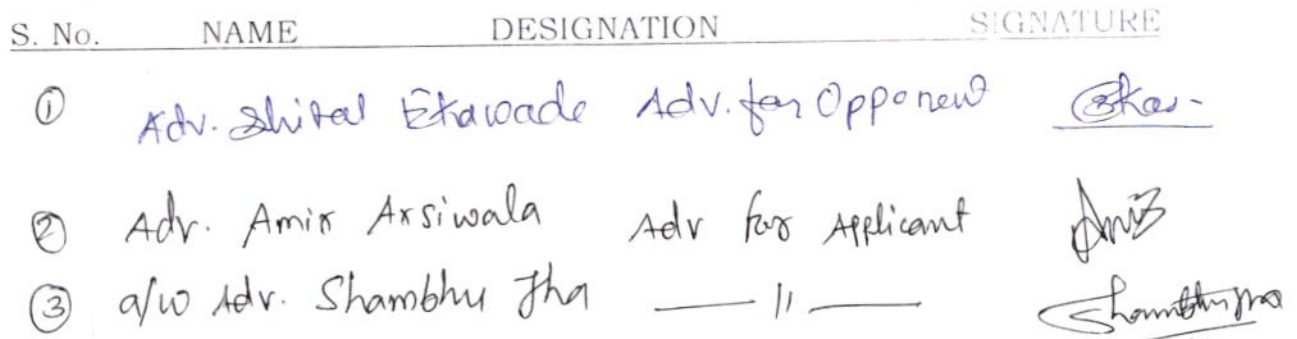 S. No. NAME DESIGNATION SIGNATURE
① Adv. Shital Ekawade Adv. for Opponent
② Adv. Amir Arsiwala Adv for Applicant
③ a/w Adv. Shambhu Jha — 〃 — Shambhu Jha